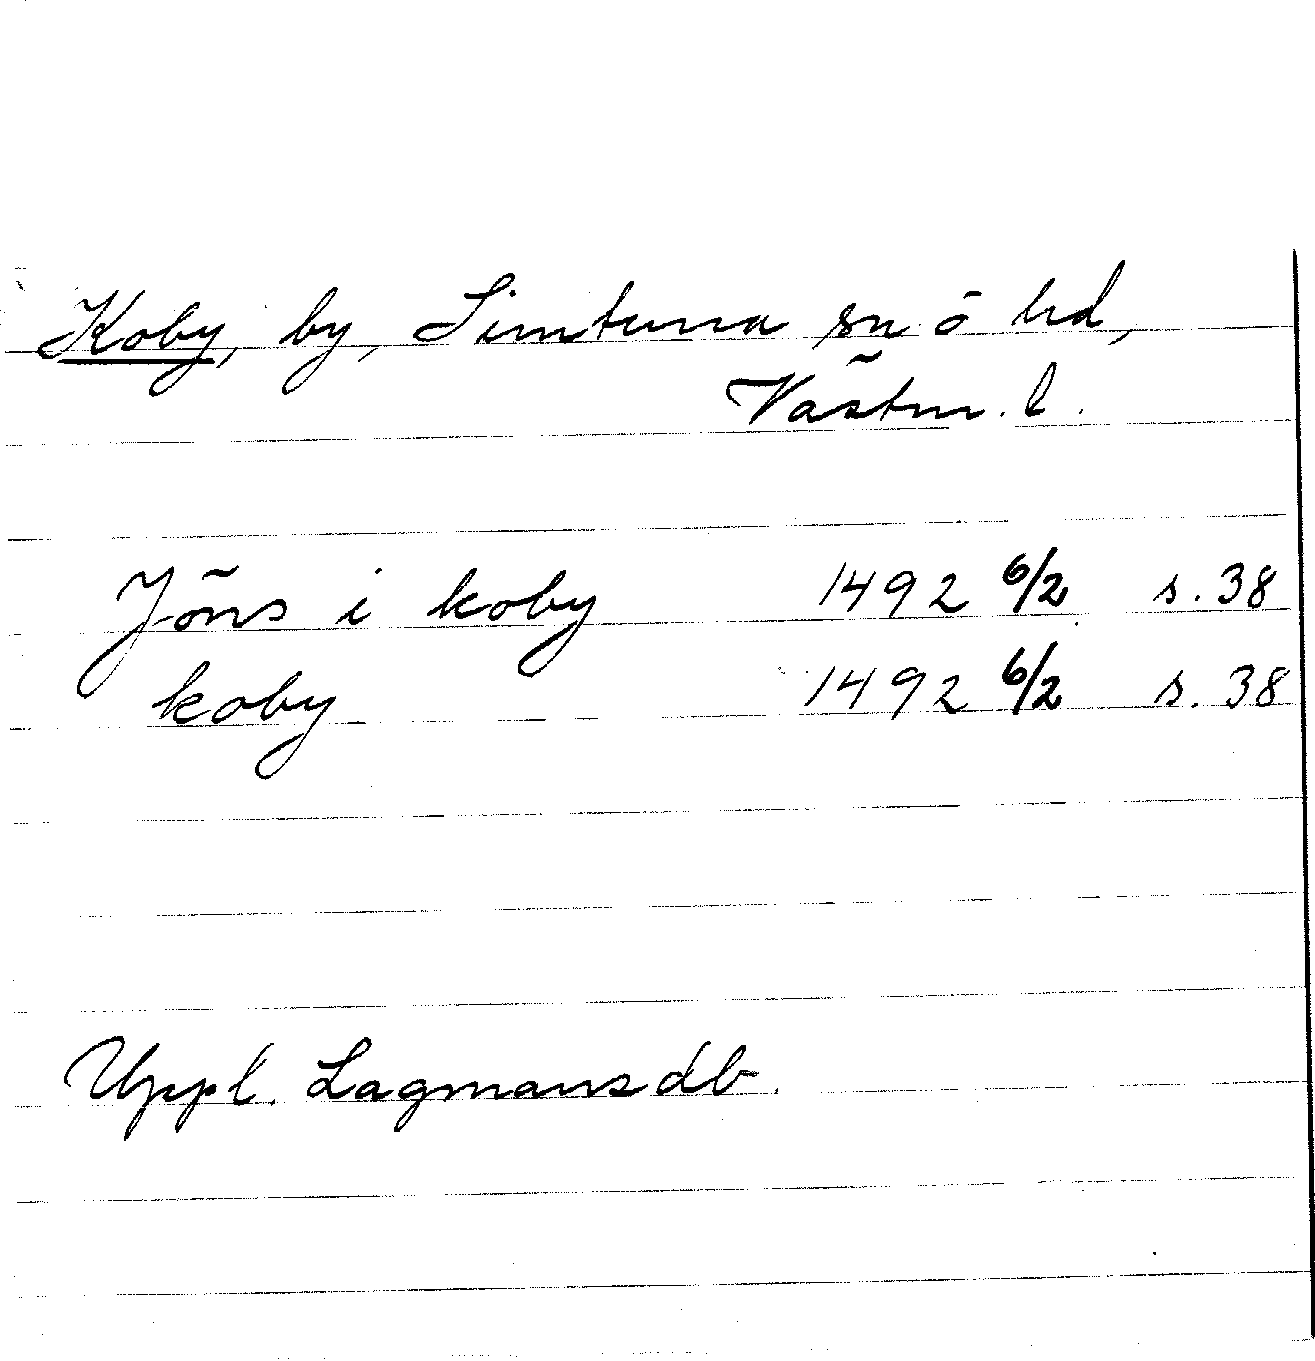 Koby, by, Simtuna sn o hd,
Västm. l.
Jöns i koby 1492 6/2 s. 38
koby 1492 6/2 s. 38
Uppl. Lagmansdb.